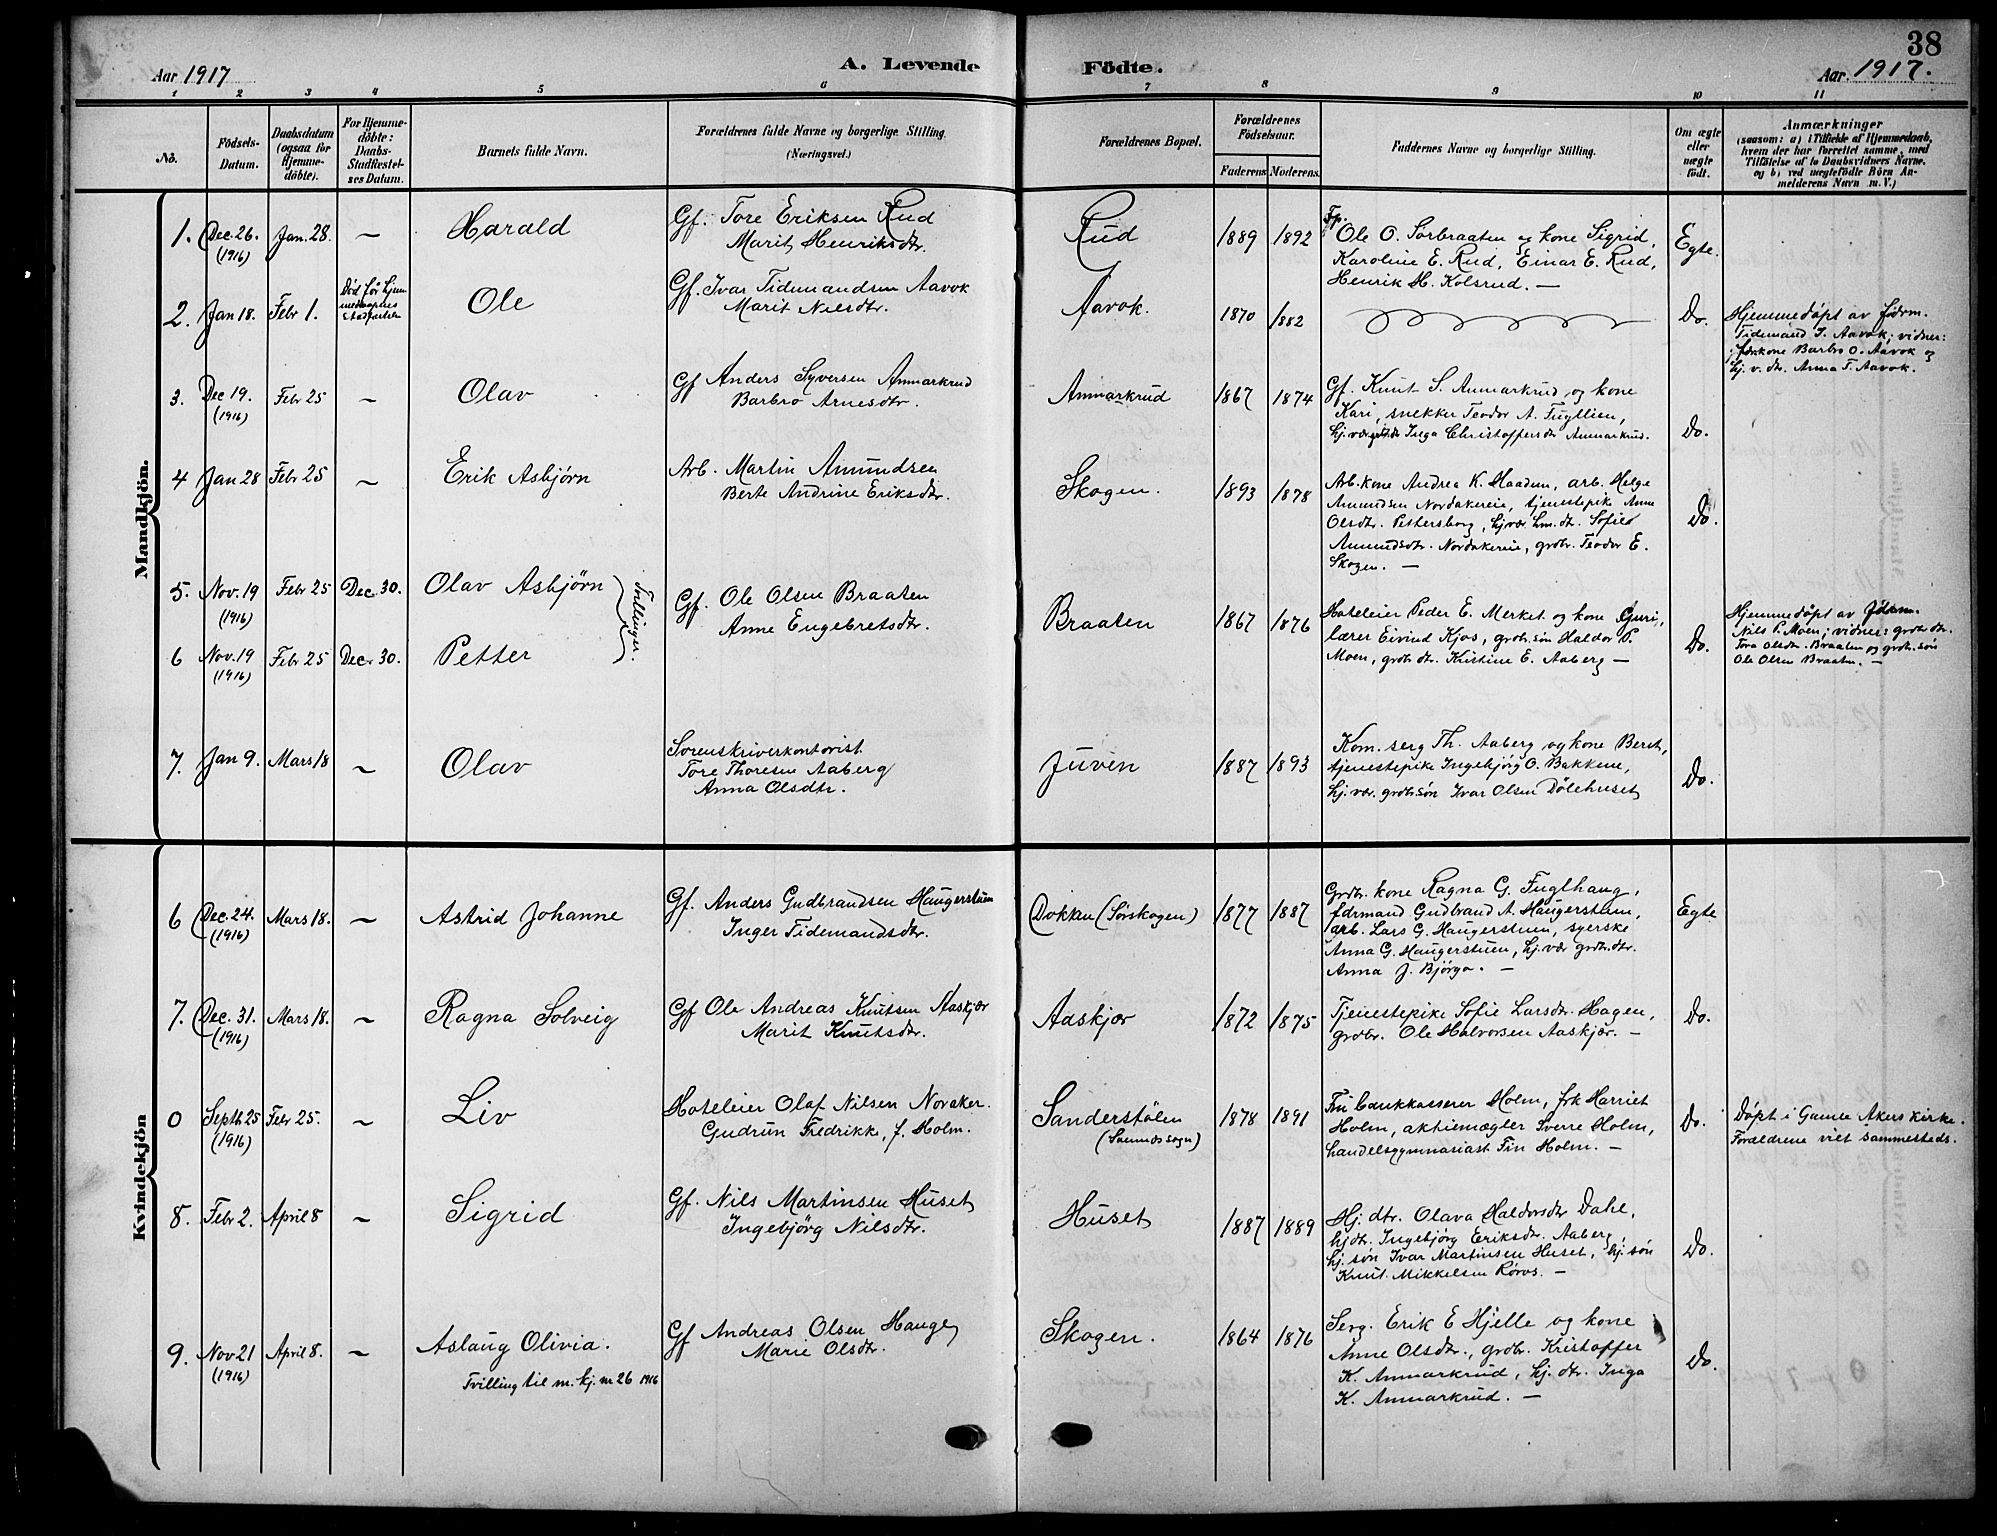 38
Aar 1917
A. Levende
Födte.
Aar. 1917.
1 2 3 4 5 6 7 8 9 10 11
No.
Födsels-
Datum.
Daabsdatum
(ogsaa for
Hjemme-
döbte).
For Hjemme-
döbte:
Daabs-
Stadfæstel-
ses Datum.
Barnets fulde Navn.
Forældrenes fulde Navne og borgerlige Stilling.
(Næringsvei.)
Forældrenes Bopæl.
Forældrenes
Födselsaar.
Faderens Moderens
Faddernes Navne og borgerlige Stilling.
Om ægte
eller
uægte
födt.
Anmærkninger
(saasom: a) i Tilfælde af Hjemmedaab,
hvem der har forrettet samme, med
Tilföielse af to Daabsvidners Navne.
og b) ved uægtefödte Börn An-
melderens Navn m. V.)
Mandkjön.
1. Dec. 26. (1916) Jan. 28. — Harald
Gf. Tore Eriksen Rud
Marit Henriksdtr.
Rud 1889 1892
Fp. Ole O. Sørbraaten og kone Sigrid,
Karoline E. Rud, Einar E. Rud,
Henrik H. Kolsrud. —
Egte.
2. Jan 18. Febr 1.
Død før hjem
medaapens
stadfæstelse
Ole
Gf. Ivar Tidemandsen Aavok
Marit Nilsdtr.
Aavok. 1870 1882
Do.
Hjemmedøpt av fødrm.
Tidemand I. Aavok; vidner:
kone Barbro O. Aavok og
hj. v. dtr. Anna T. Aavok.
3. Dec 19. (1916) Febr 25 — Olav
Gf Anders Syversen Anmarkrud
Barbro Arnesdtr.
Anmarkrud 1867 1874
Gf. Knut S. Anmarkrud og kone
Kari, snekker Teodor A. Fugllien,
hj. vær. Inga Christoffersdtr Anmarkrud.
Do.
4 Jan 28 Febr 25 — Erik Asbjørn
Arb. Martin Amundsen
Berte Andrine Eriksdtr.
Skogen. 1893 1878
Arb. kone Andrea K. Haadem, arb. Helge
Amundsen Nordakereie, tjenestepike Anne
Olsdtr. Pettersborg, hj vær. hm. dtr. Sofie
Amundsdtr. Nordakereie, grdbr. Teodor E.
Skogen. —
Do.
5. Nov. 19 (1916) Febr 25 Dec. 30. Olav Asbjörn
Tvillinger.
Gf. Ole Olsen Braaten
Anne Engebretsdtr.
6 Nov. 19 (1916) Febr 25 Dec. 30. Petter
Braaten 1867 1876
Hoteleier Peder E. Merket og kone Guri,
lærer Eivind Kjos, grdbr. søn Haldor P.
Moen, grdbr. dtr. Kristine E. Aaberg —
Do.
Hjemmedøpt av fdrm.
Nils P. Moen; vidner: grdbr. dtr.
Tora Olsdtr. Braaten og grdbr. søn
Ole Olsen Braaten. —
7. Jan 9. Mars 18 — Olav
Sorenskriverkontorist
Tore Thoresen Aaberg
Anna Olsdtr.
Juven 1887 1893
Kom. serg Th. Aaberg og kone Berit,
tjenestepike Ingebjørg O. Bakkene,
hj. vær. grdbr. søn Ivar Olsen Dölehuset
Do.
Kvindekjön
6 Dec. 24. (1916) Mars 18. — Astrid Johanne
Gf. Anders Gudbrandsen Haugerstuen
Inger Tidemandsdtr.
Dokken (Sørskogen) 1877 1887
Grdbr. kone Ragna G. Fuglhaug,
førmand Gudbrand A. Haugerstuen,
arb. Lars G. Haugerstuen, syerske
Anna G. Haugerstuen, hj. vær grdbr. dtr.
Anna J. Bjørgo. —
Egte
7. Dec. 31. (1916) Mars 18. — Ragna Solveig
Gf Ole Andreas Knutsen Aaskjær
Marit Knutsdtr.
Aaskjær 1872 1875
Tjenestepike Sofie Larsdtr. Hagen,
grdbr. Ole Halvorsen Aaskjær. —
Do.
0 Septb 25 (1916) Febr 25. — Liv
Hoteleier Olaf Nilsen Novaker.
Gudrun Fredrikke, f. Holm.
Sanderstølen
(Saumds sogn)
1878 1891
Fru bankkasserer Holm, frk Harriet
Holm, aktiemægler Sverre Holm,
handelsgymnasiast Fin Holm. —
Do.
Døpt i Gamle Akers kirke.
Forældrene viet sammesteds.
8. Febr 2. April 8 — Sigrid
Gf. Nils Martinsen Huset
Ingebjörg Nilsdtr.
Huset 1887 1889
Hj. dtr. Olava Haldorsdtr Dahl,
hj dtr. Ingebjørg Eriksdtr. Aaberg,
hj. søn Ivar Martinsen Huset, hj. søn
Knut Mikkelsen Røros. —
Do.
9. Nov 21 (1916) April 8. — Aslaug Olivia.
Tvilling til m. kj. nr 26 1916
Gf Andreas Olsen Hauge
Marie Olsdtr.
Skogen. 1864 1876
Serg. Erik E Hjelle og kone
Anne Olsdtr., grdbr. Kristoffer
K. Anmarkrud, hj. dtr. Inga
K. Anmarkrud. —
Do.